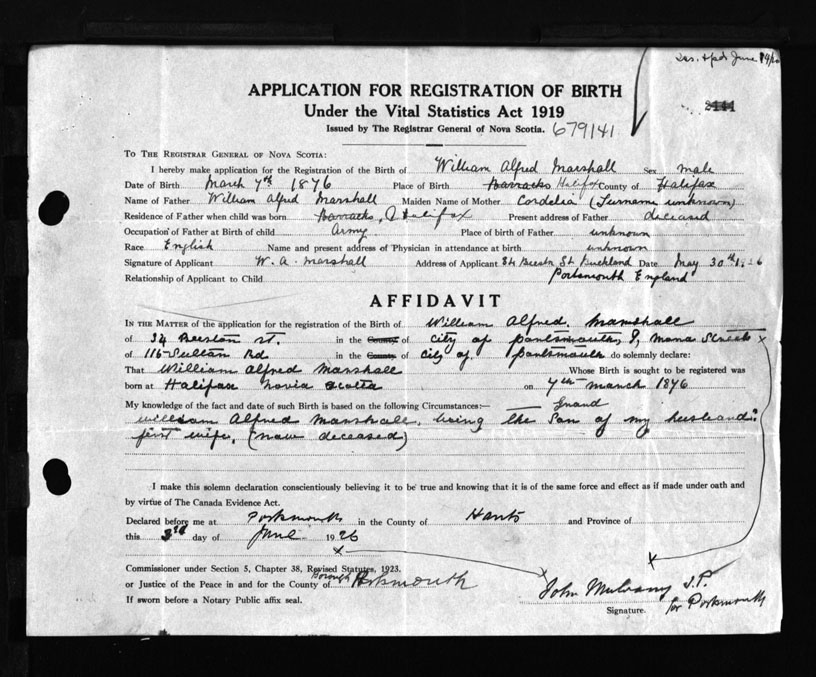 June 19/26
APPLICATION FOR REGISTRATION OF BIRTH
Under the Vital Statistics Act 1919
2444
Issued by The Registrar General of Nova Scotia. 679141
TO THE REGISTRAR GENERAL OF NOVA SCOTIA:
I hereby make application for the Registration of the Birth of William Alfred Marshall Sex male
Date of Birth March 7th 1876 Place of Birth Barracks Halifax County of Halifax
Name of Father William Alfred Marshall Maiden Name of Mother Cordelia (Surname unknown)
Residence of Father when child was born Barracks, Halifax Present address of Father deceased
Occupation of Father at Birth of child Army Place of birth of Father unknown
Race English Name and present address of Physician in attendance at birth unknown
Signature of Applicant W. A. Marshall Address of Applicant 34 St Buckland Date May 30th 1926
Relationship of Applicant to Child Portsmouth England
AFFIDAVIT
IN THE MATTER of the application for the registration of the Birth of William Alfred. Marshall
of 34 st. in the County of City of Portsmouth, I,
of 116 Sultan Rd in the County of City of. Portsmouth do solemnly declare:
That William Alfred Marshall Whose Birth is sought to be registered was
born at Halifax Novia Scotia on 7th March 1876
My knowledge of the fact and date of such Birth is based on the following Circumstances:— Grand
William Alfred Marshall, being the Son of my husband's
first wife. (now deceased)
I make this solemn declaration conscientiously believing it to be true and knowing that it is of the same force and effect as if made under oath and
by virtue of The Canada Evidence Act.
Declared before me at Portsmouth in the County of Hants and Province of
this 3rd day of June 1926
Commissioner under Section 5, Chapter 38, Revised Statutes, 1923.
or Justice of the Peace in and for the County of Borough Portsmouth
If sworn before a Notary Public affix seal.
John Mulvany J.P.
for Portsmouth
Signature.